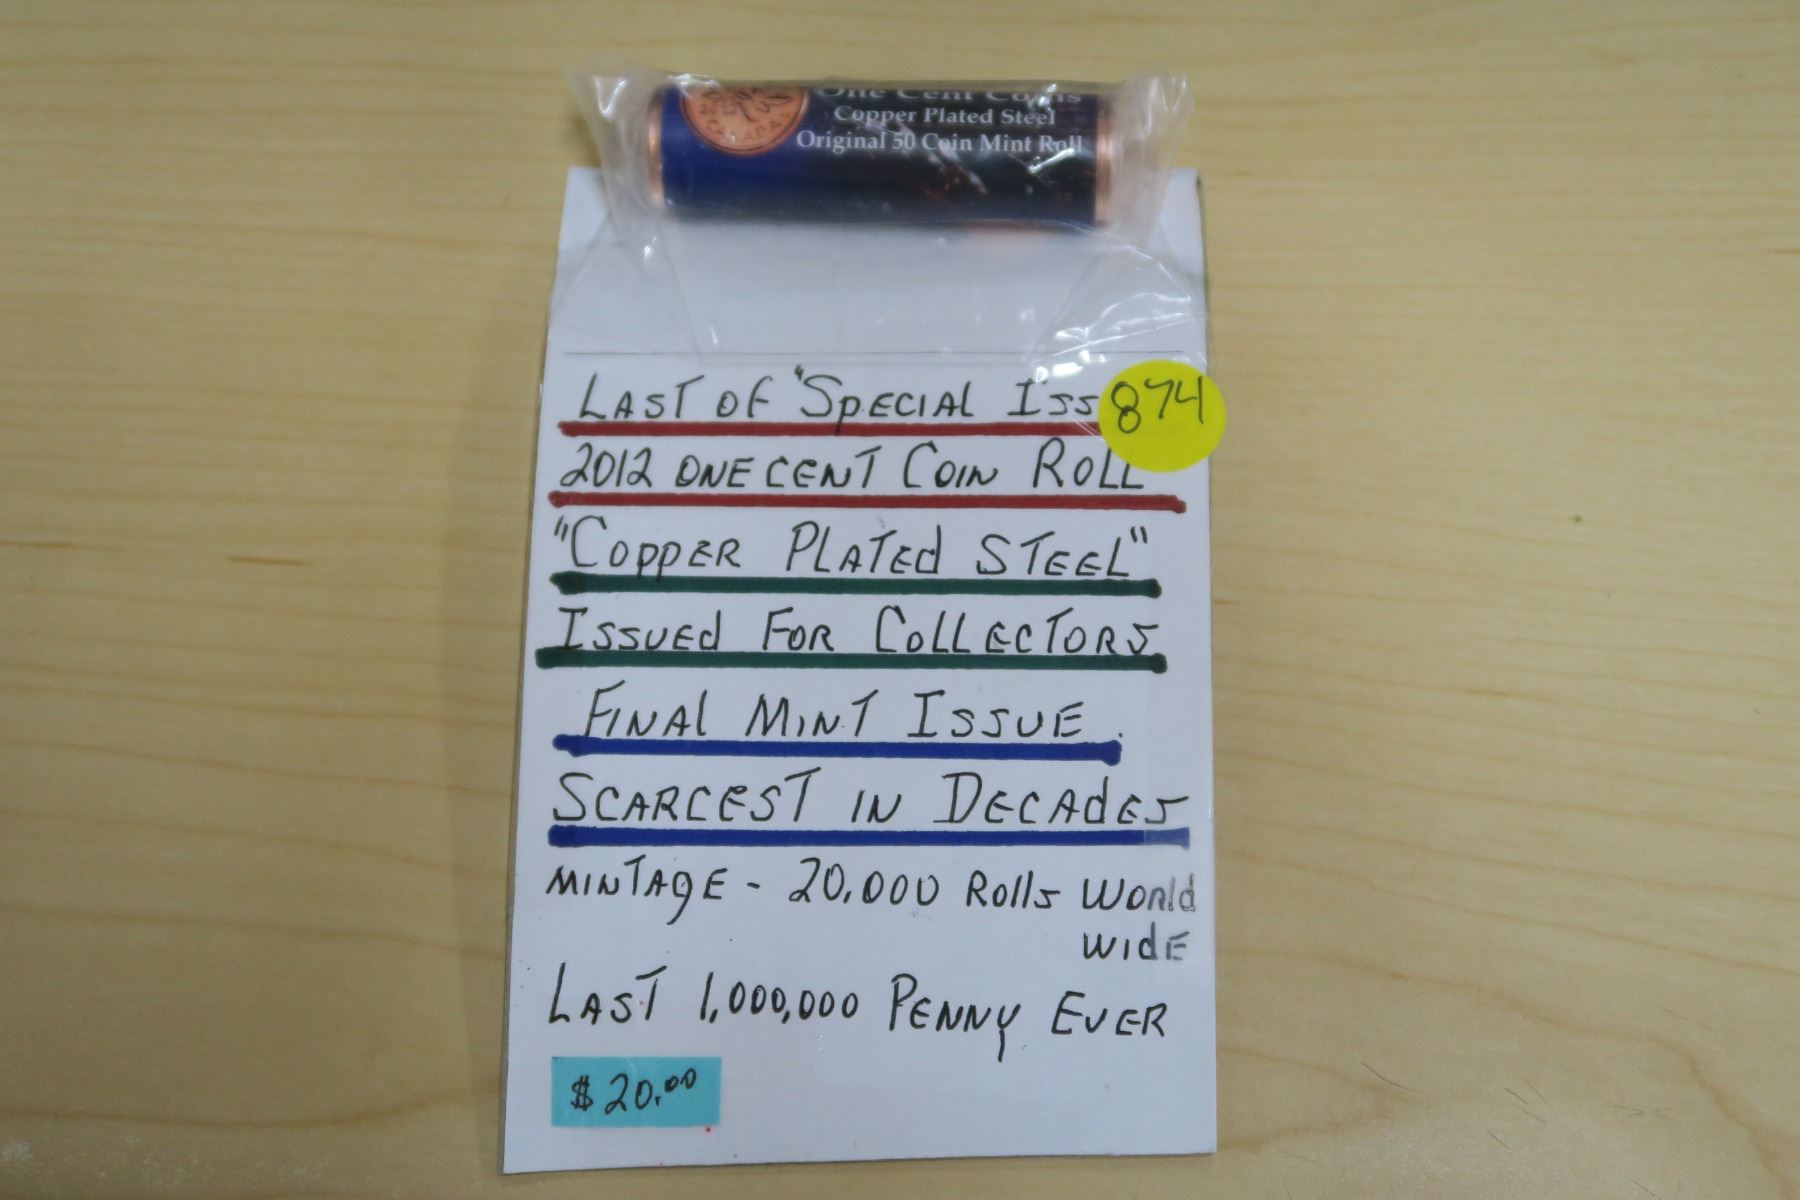 One Cent Coins
Copper Plated Steel
Original 50 Coin Mint Roll
CANADA
LAST OF "SPECIAL ISS
874
2012 ONE CENT COIN ROLL
"COPPER PLATEd STEEL"
ISSUEd FOR COLLECTORS
FINAl MINT ISSUE.
SCARCEST IN DECAdES
MINTAgE - 20,000 Rolls World
WidE
LAST 1,000,000 PENNY EVER
$20.00